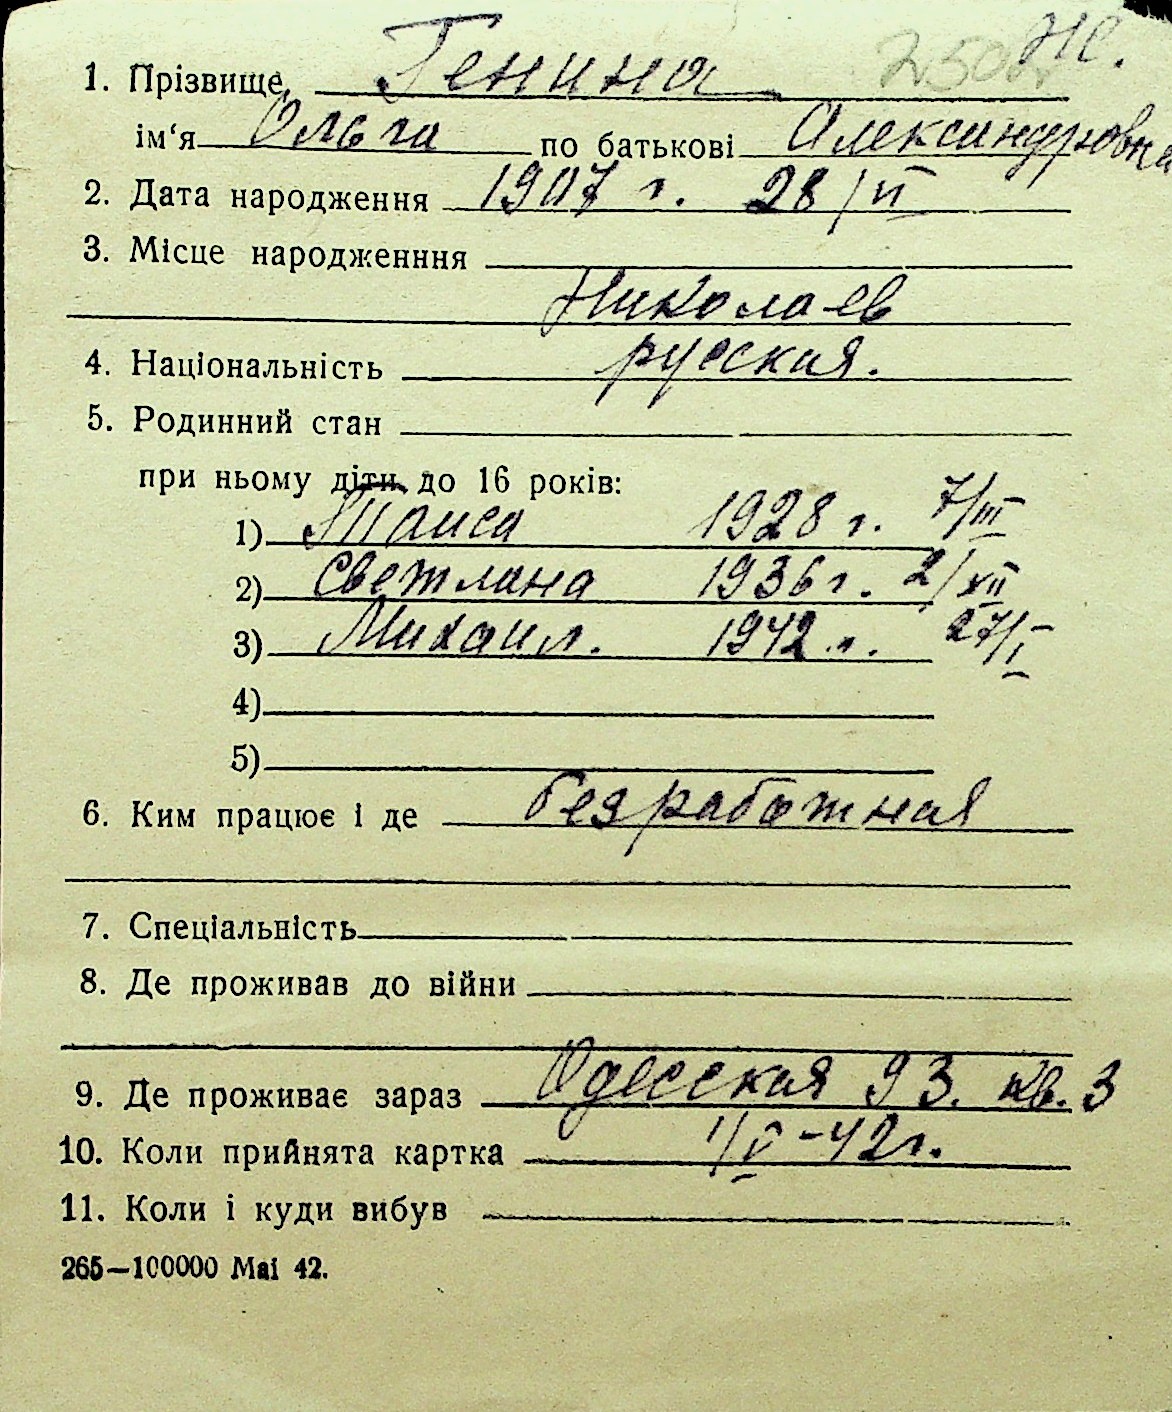 Же.
1. Прізвище Генина
ім‘я Ольга по батькові Александровна
2. Дата народження 1907 г. 28/VI
3. Місце народженння
Николаев
4. Національність русская.
5. Родинний стан
при ньому діти до 16 років:
1) Таиса 1928 г. 7/III
2) Светлана 1936 г. 2/XII
3) Михаил. 1942 г. 27/I
4)
5)
6. Ким працює і де безработная
7. Спеціальність
8. Де проживав до війни
9. Де проживає зараз Одесская 93. кв. 3
10. Коли прийнята картка 1/V-42г.
11. Коли і куди вибув
265—100000 Mai 42.